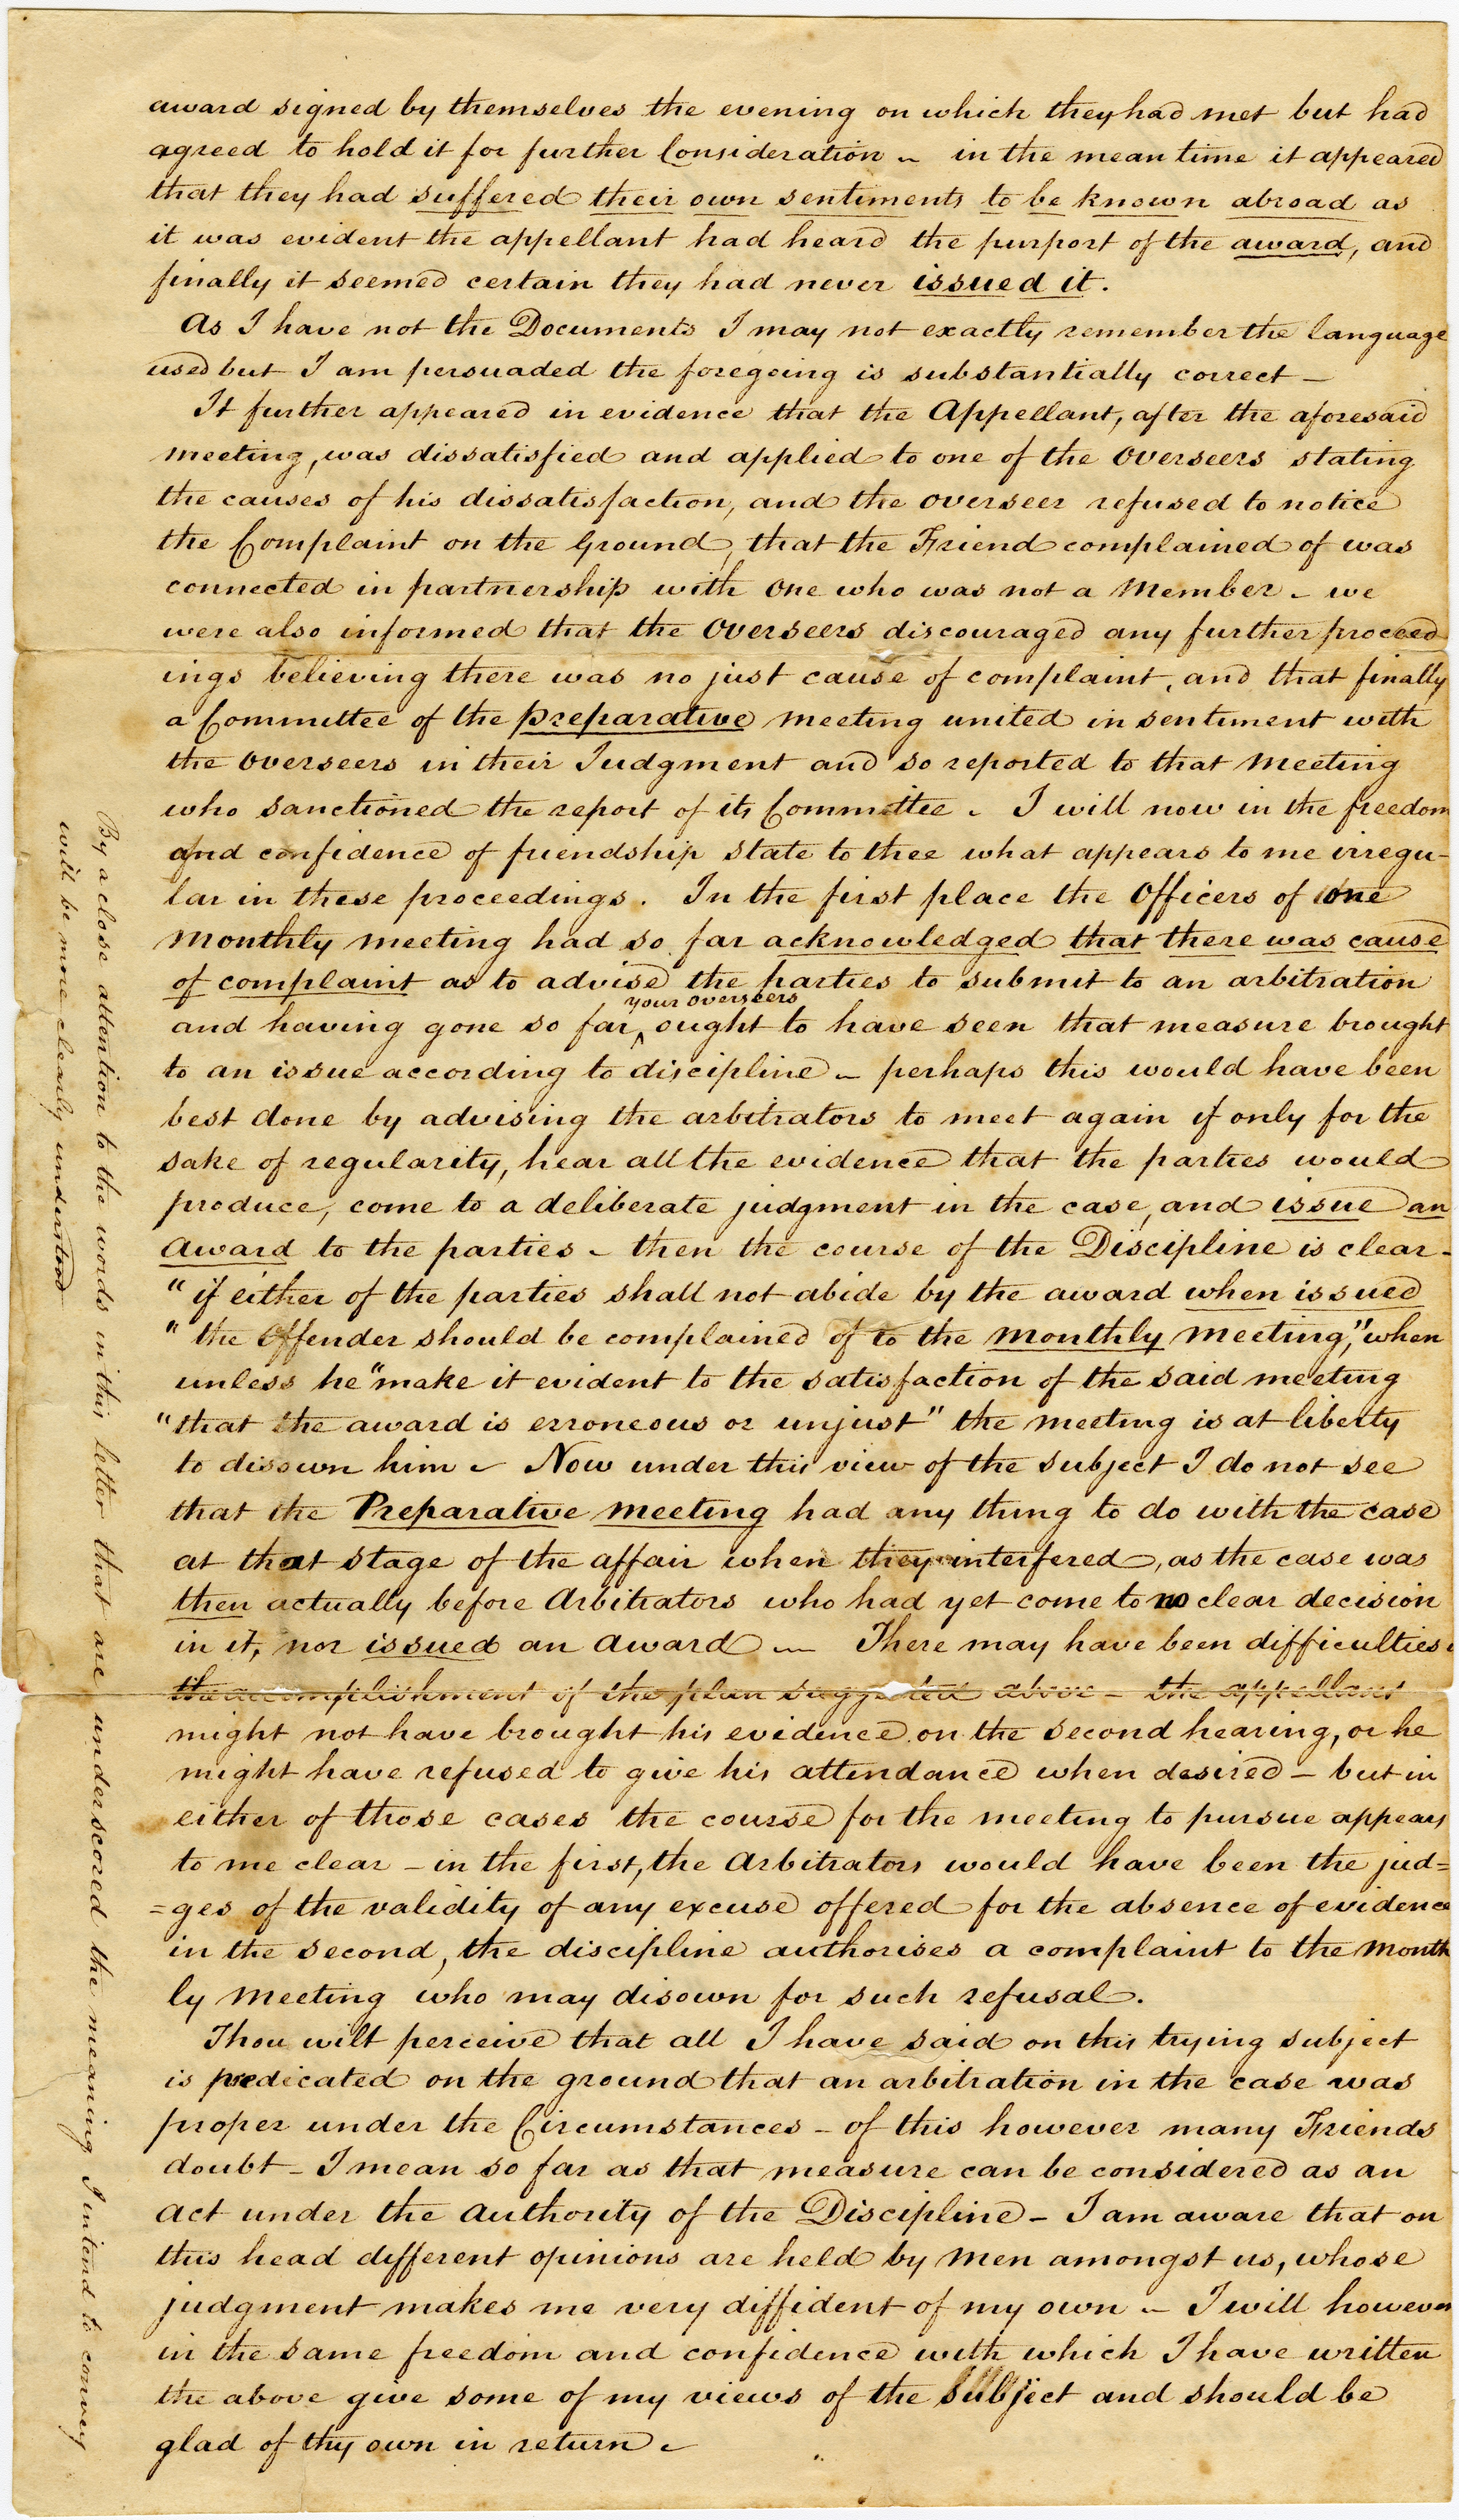 award signed by themselves the evening on which they had met but had
agreed to hold it for further Consideration ~ in the mean time it appeared
that they had suffered their own sentiments to be known abroad as
it was evident the appellant had heard the purport of the award, and
finally it seemed certain they had never issued it.
As I have not the Documents I may not exactly remember the language
used but I am persuaded the foregoing is substantially correct –
It further appeared in evidence that the Appellant, after the aforesaid
meeting, was dissatisfied and applied to one of the Overseers stating
the causes of his dissatisfaction, and the overseer refused to notice
the Complaint on the Ground, that the Friend complained of was
connected in partnership with one who was not a Member - we
were also informed that the Overseers discouraged any further proceed
ings believing there was no just cause of complaint, and that finally
a Committee of the preparative meeting united in sentiment with
the Overseers in their Judgment and so reported to that Meeting
who sanctioned the report of its Committee - I will now in the freedom
and confidence of friendship state to thee what appears to me irregu-
lar in these proceedings. In the first place the Officers of one
Monthly meeting had so far acknowledged that there was cause
of complaint as to advise the parties to submit to an arbitration
your overseers
and having gone so far ^ ought to have seen that measure brought
to an issue according to discipline - perhaps this would have been
best done by advising the arbitrators to meet again if only for the
sake of regularity, hear all the evidence that the parties would
produce, come to a deliberate judgment in the case, and issue an
award to the parties - then the course of the Discipline is clear -
"if either of the parties shall not abide by the award when issued
"the Offender should be complained of to the Monthly Meeting," when
unless he "make it evident to the satisfaction of the said meeting
"that the award is erroneous or unjust" the meeting is at liberty
to disown him - Now under this view of the subject I do not see
that the Preparative meeting had any thing to do with the case
at that stage of the affair when they interfered, as the case was
then actually before Arbitrators who had yet come to no clear decision
in it, nor issued an award - There may have been difficulties
the accomplishment of the plan suggested above - the appellant
might not have brought his evidence on the second hearing, or he
might have refused to give his attendance when desired - but in
either of those cases the course for the meeting to pursue appears
to me clear - in the first, the Arbitrators would have been the jud=
=ges of the validity of any excuse offered for the absence of evidence
in the second, the discipline authorises a complaint to the Month
ly Meeting who may disown for such refusal.
Thou wilt perceive that all I have said on this trying subject
is predicated on the ground that an arbitration in the case was
proper under the Circumstances - of this however many Friends
doubt - I mean so far as that measure can be considered as an
act under the authority of the Discipline - I am aware that on
this head different opinions are held by Men amongst us, whose
judgment makes me very diffident of my own - I will however
in the same freedom and confidence with which I have written
the above give some of my views of the subject and should be
glad of thy own in return -
By a close attention to the words in this letter that are underscored the meaning I intend to convey
will be more clearly understood